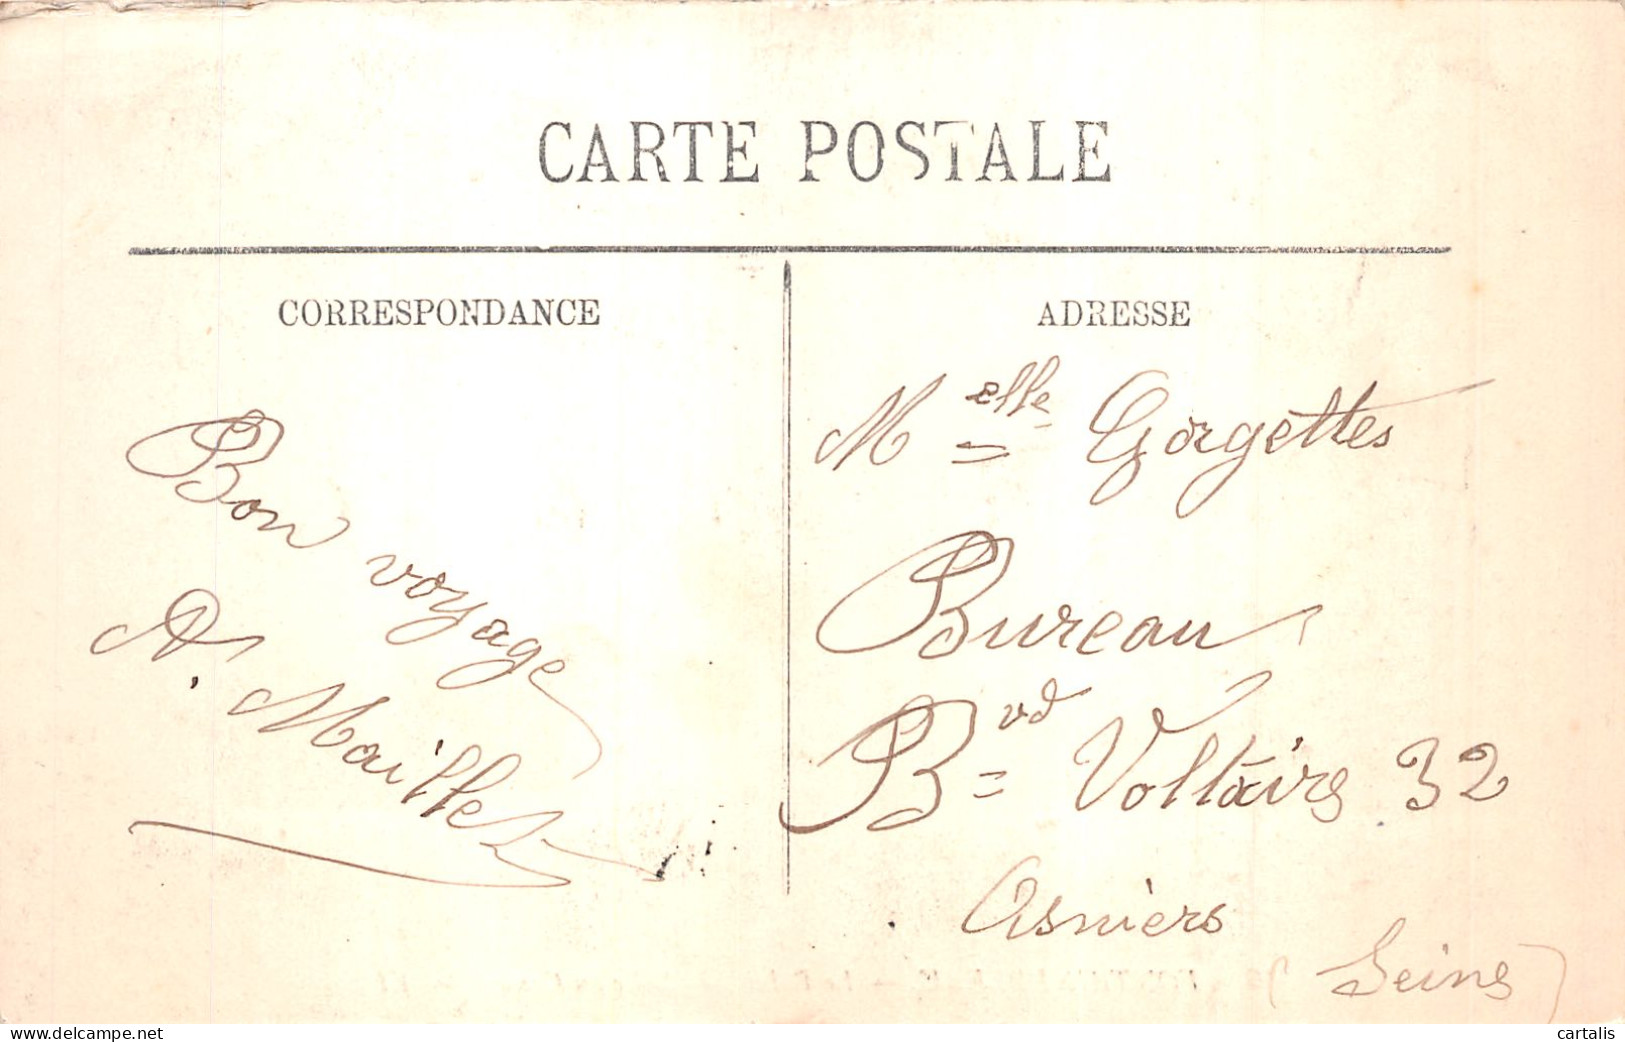 CARTE POSTALE
CORRESPONDANCE
Bon voyage
A. Maillet
ADRESSE
Melle Gorgettes
Bureau
Bvd Voltaire 32
Asniers
Seine
www.delcampe.net
cartalis